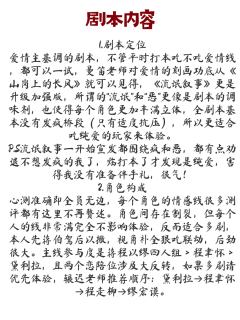 剧本内容
1.剧本定位
爱情主基调的剧本，不管平时打本吃不吃爱情线
，都可以一试，曼笛老师对爱情的刻画功底从《
山岗上的长风》就可以见得，《沉诋叙事》更是
升级加强版，所谓的“沉诋”和“恶”更像是剧本的调
味剂，也使得每个角色更加丰满立体，全剧本基
本没有发疯桥段（只有适度抗压），所以更适合
吃纯爱的玩家来体验。
PS沉诋叙事一开始宣发都围绕疯和恶，都有点劝
退不想发疯的我了，结打本了才发现是纯爱，害
得我没有准备伴手礼，很气！
2.角色构成
心测准确即全员无边，每个角色的情感线很多测
评都有这里不再赘述。角色间存在割裂，但每个
人的线非常满完全不影响体验，反而适合多刷，
本人先蒋俗驾后以维，视角补全跟吃联动，后劲
很大。主线参与度是蒋程以缪四人组＞程聿怀＞
黛利拉，且两个恋陪位涉及大反转，如果多刷请
优先体验，辗迟老师推荐顺序：黛利拉→程聿怀
→程走柳→缪宏谟。